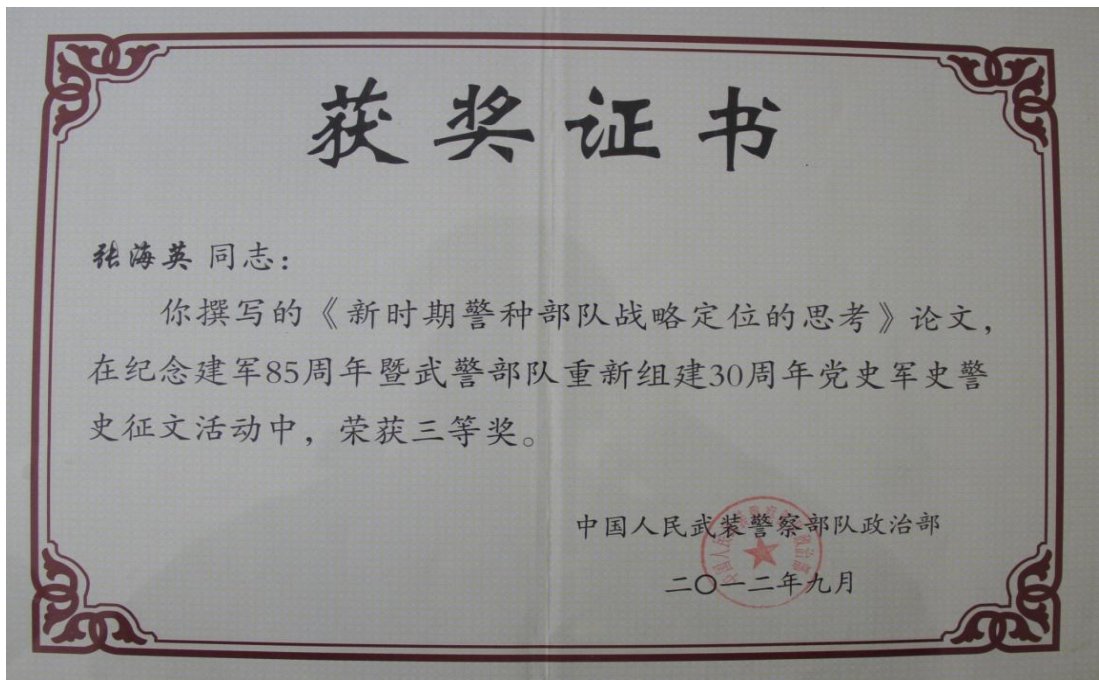 获奖证书
张海英 同志：
你撰写的《新时期警种部队战略定位的思考》论文，
在纪念建军85周年暨武警部队重新组建30周年党史军史警
史征文活动中，荣获三等奖。
中国人民武装警察部队政治部
二〇一二年九月